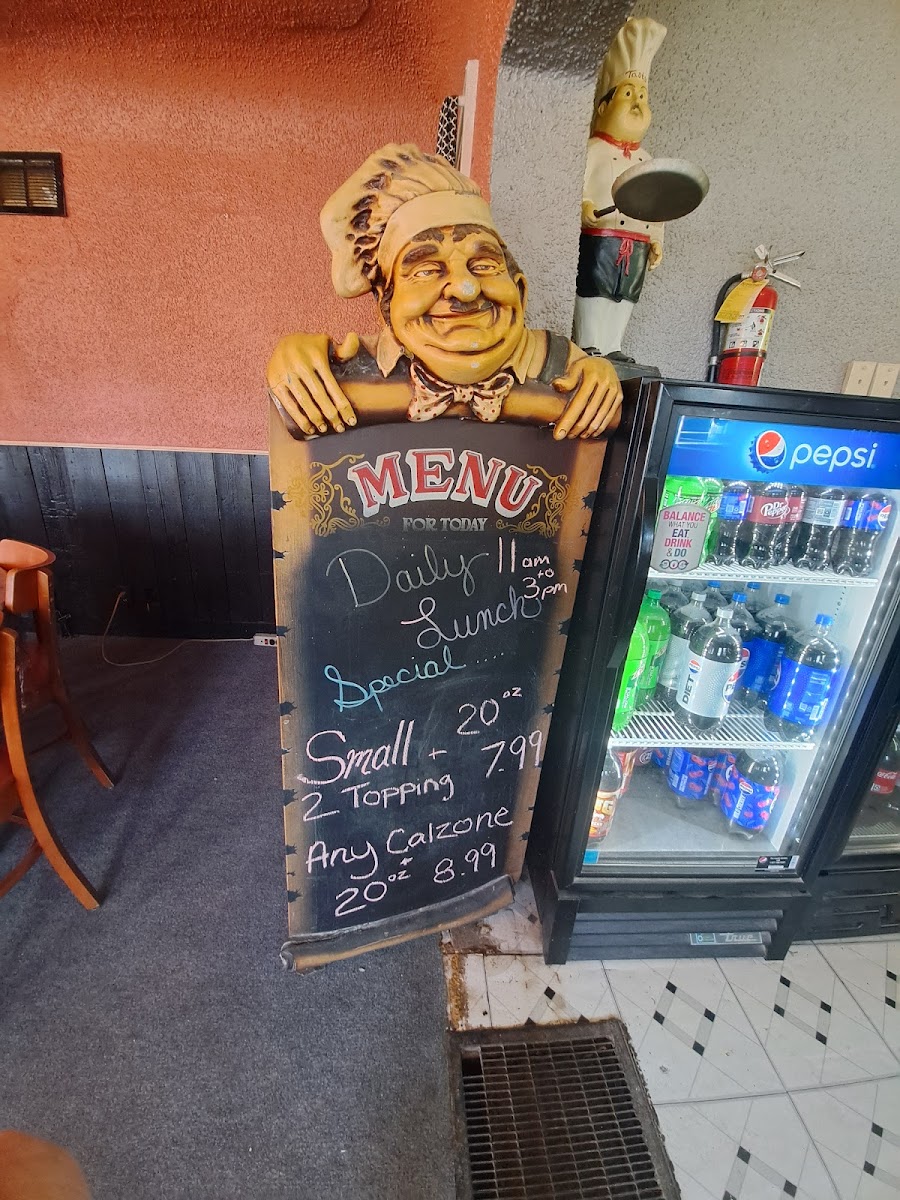 Tasty
MENU
FOR TODAY
Daily 11 am
to
Lunch 3 pm
Special.....
Small + 20 oz
2 Topping 7.99
Any Calzone
+
20 oz 8.99
pepsi
BALANCE
WHAT YOU
EAT
DRINK
& DO
Dr Pepper
DIET
True
Coca-Cola